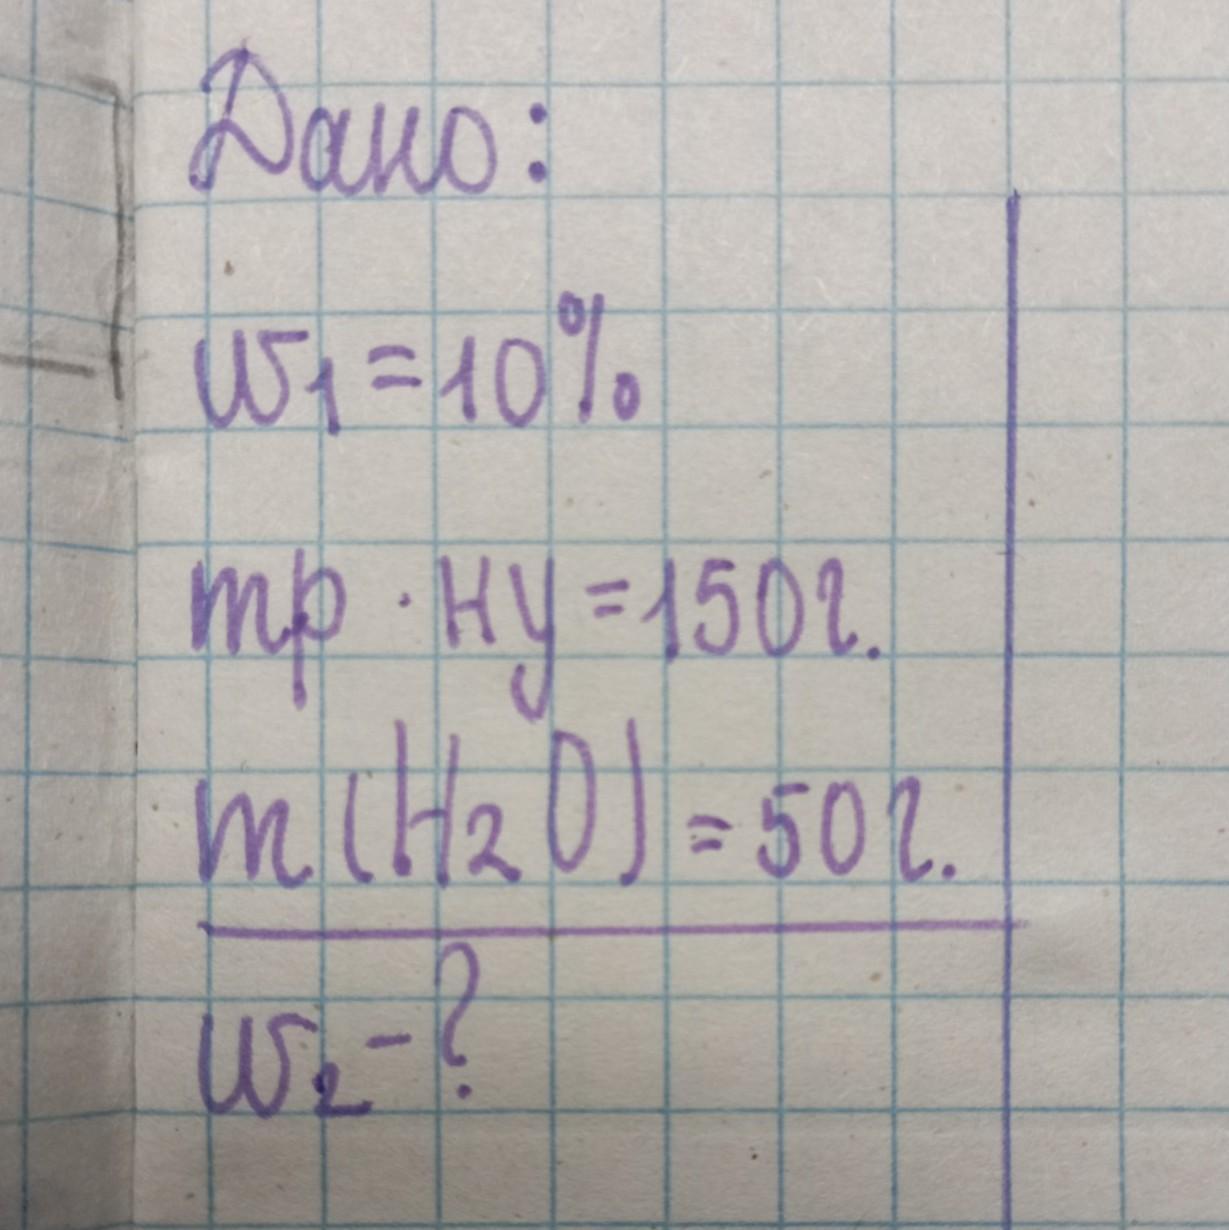 Дано:
W1=10%
mр · ну=150г.
m(H2O)=50г.
W2-?